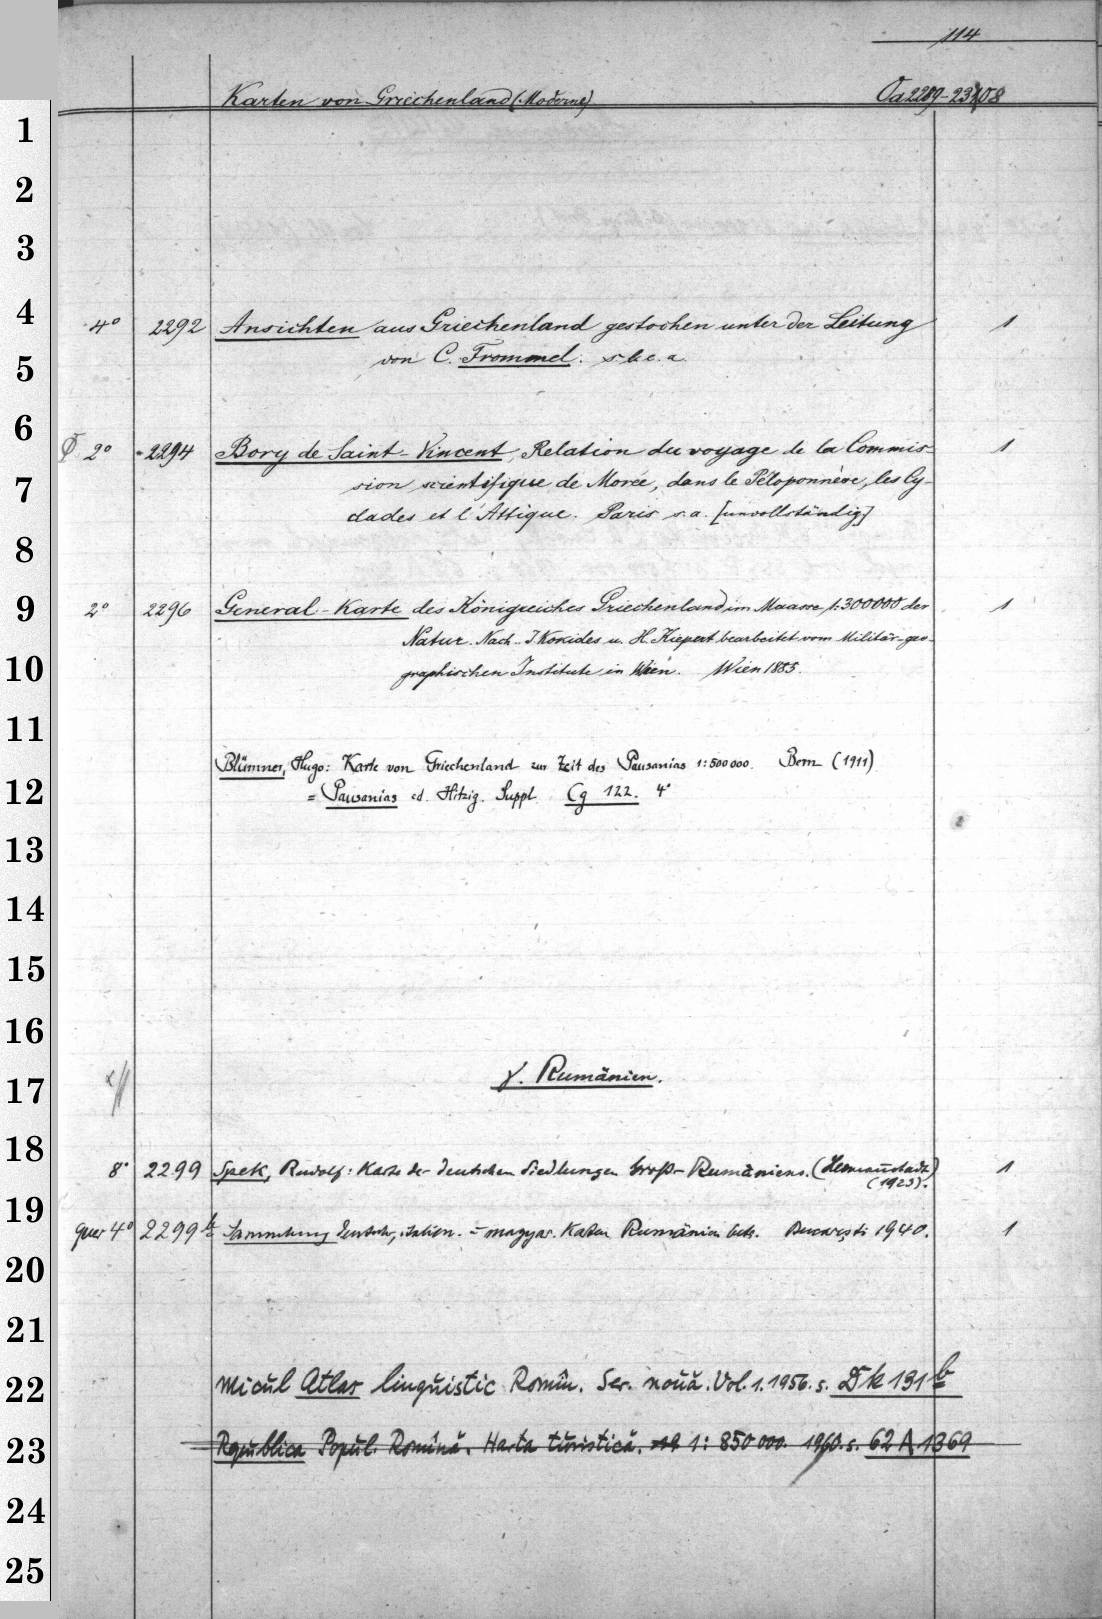 114
Karten von Griechenland (Moderne) Oa 2289-2308
1
2
3
4
4° 2292 Ansichten aus Griechenland gestochen unter der Leitung 1
von C. Frommel. s. l. e. a.
5
6
2° 2294 Bory de Saint-Vincent, Relation du voyage de la Commis- 1
7
sion scientifique de Morée, dans le Péloponnèse, les Cy-
clades et l'Attique. Paris s. a. [unvollständig]
8
9
2° 2296 General-Karte des Königreiches Griechenland im Maasse 1:300000 der 1
Natur. Nach J. Kokides u. H. Kiepert bearbeitet vom Militär-geo-
10
graphischen Institute in Wien. Wien 1885.
11
Blümner, Hugo: Karte von Griechenland zur Zeit des Pausanias 1:500 000. Bern (1911)
12
= Pausanias ed. Hitzig. Suppl. Cg 122. 4°
13
14
15
16
γ. Rumänien.
17
18
8° 2299 Spek, Rudolf: Karte der deutschen Siedlungen Groß-Rumäniens. (Hermannstadt) 1
(1923).
19
quer 4° 2299 b Sammlung deutsch., italien. = magyar. Karten Rumänien betr. Bucureşti 1940. 1
20
21
22
Micul Atlas linguistic Romîn. Ser. nouă. Vol. 1. 1956. s. Dk 131 b
23
Republica Popul. Romînă. Harta turistică. 1:850 000. 1960. s. 62 A 1369
24
25